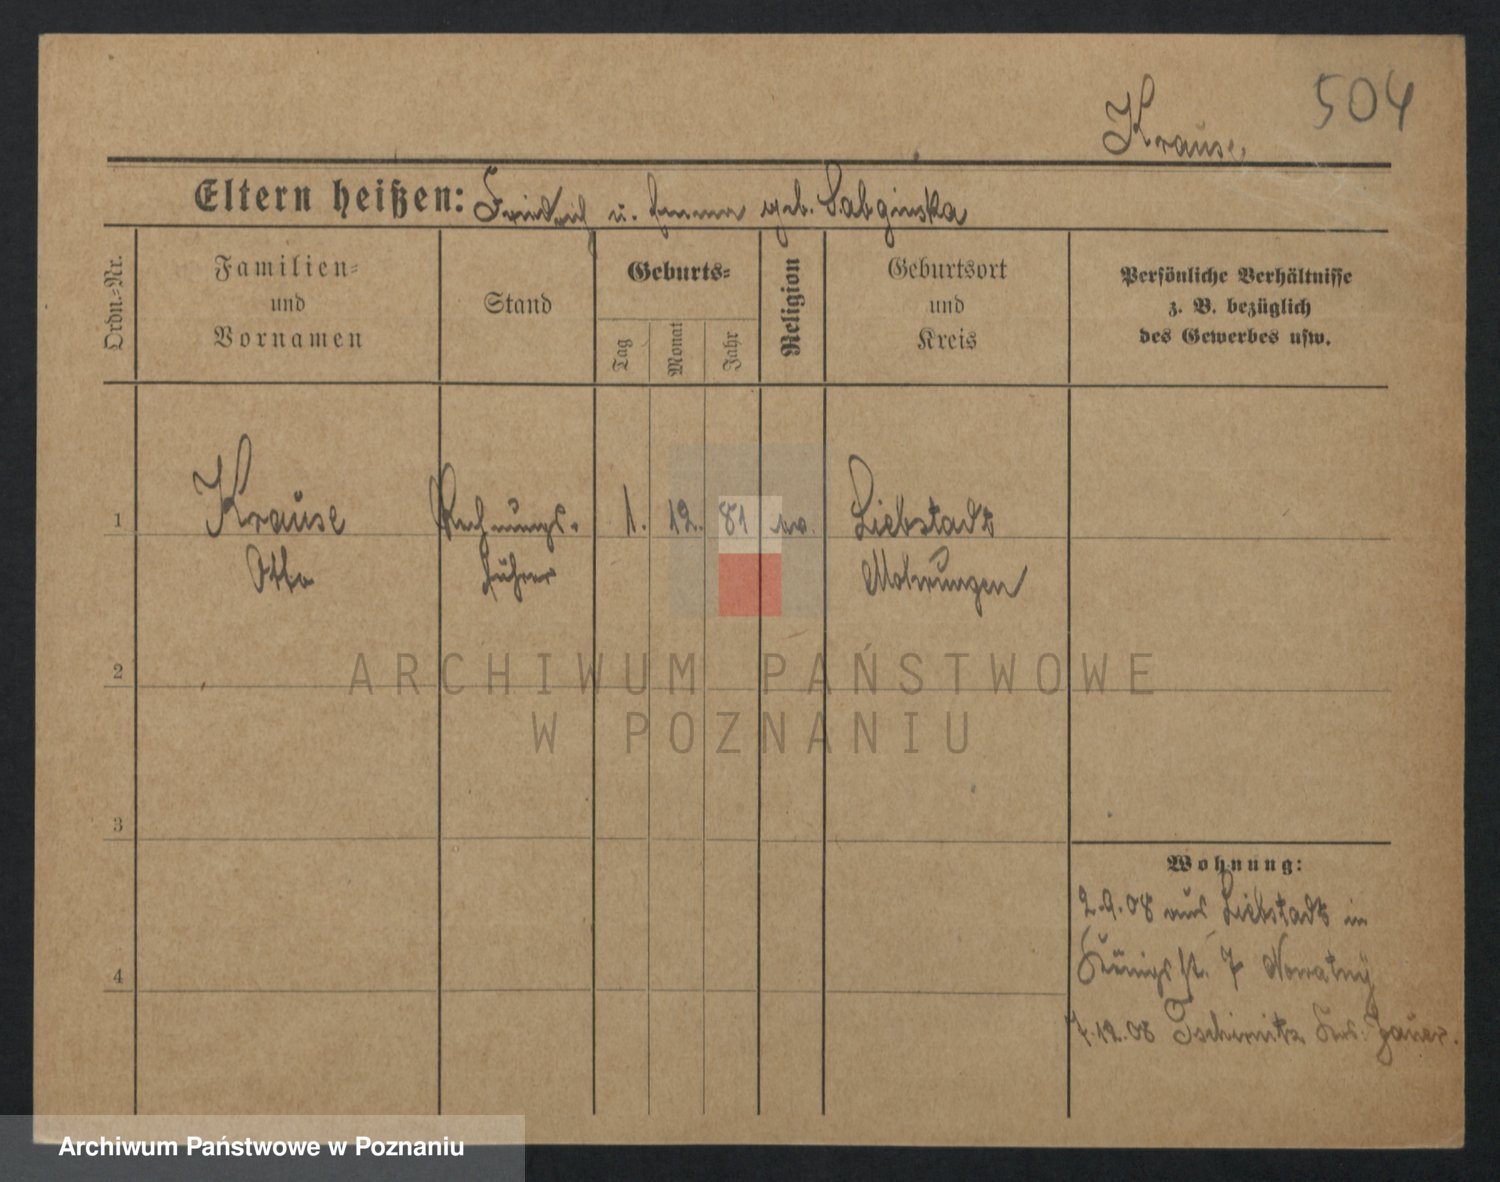 504
Krause
Eltern heißen: Friedrich u. geb.
Ordn.-Nr.
Familien-
und
Vornamen
Stand
Geburts-
Tag
Monat
Jahr
Religion
Geburtsort
und
Kreis
Persönliche Verhältnisse
z. B. bezüglich
des Gewerbes usw.
1
Krause
Otto
Rechnungs-
führer
1. 12. 81
Liebstadt
Mohrungen
2
3
4
ARCHIWUM PAŃSTWOWE
W POZNANIU
Wohnung:
2.9.08 aus Liebstadt in
Königst. 7
7.12.08 Jauer.
Archiwum Państwowe w Poznaniu